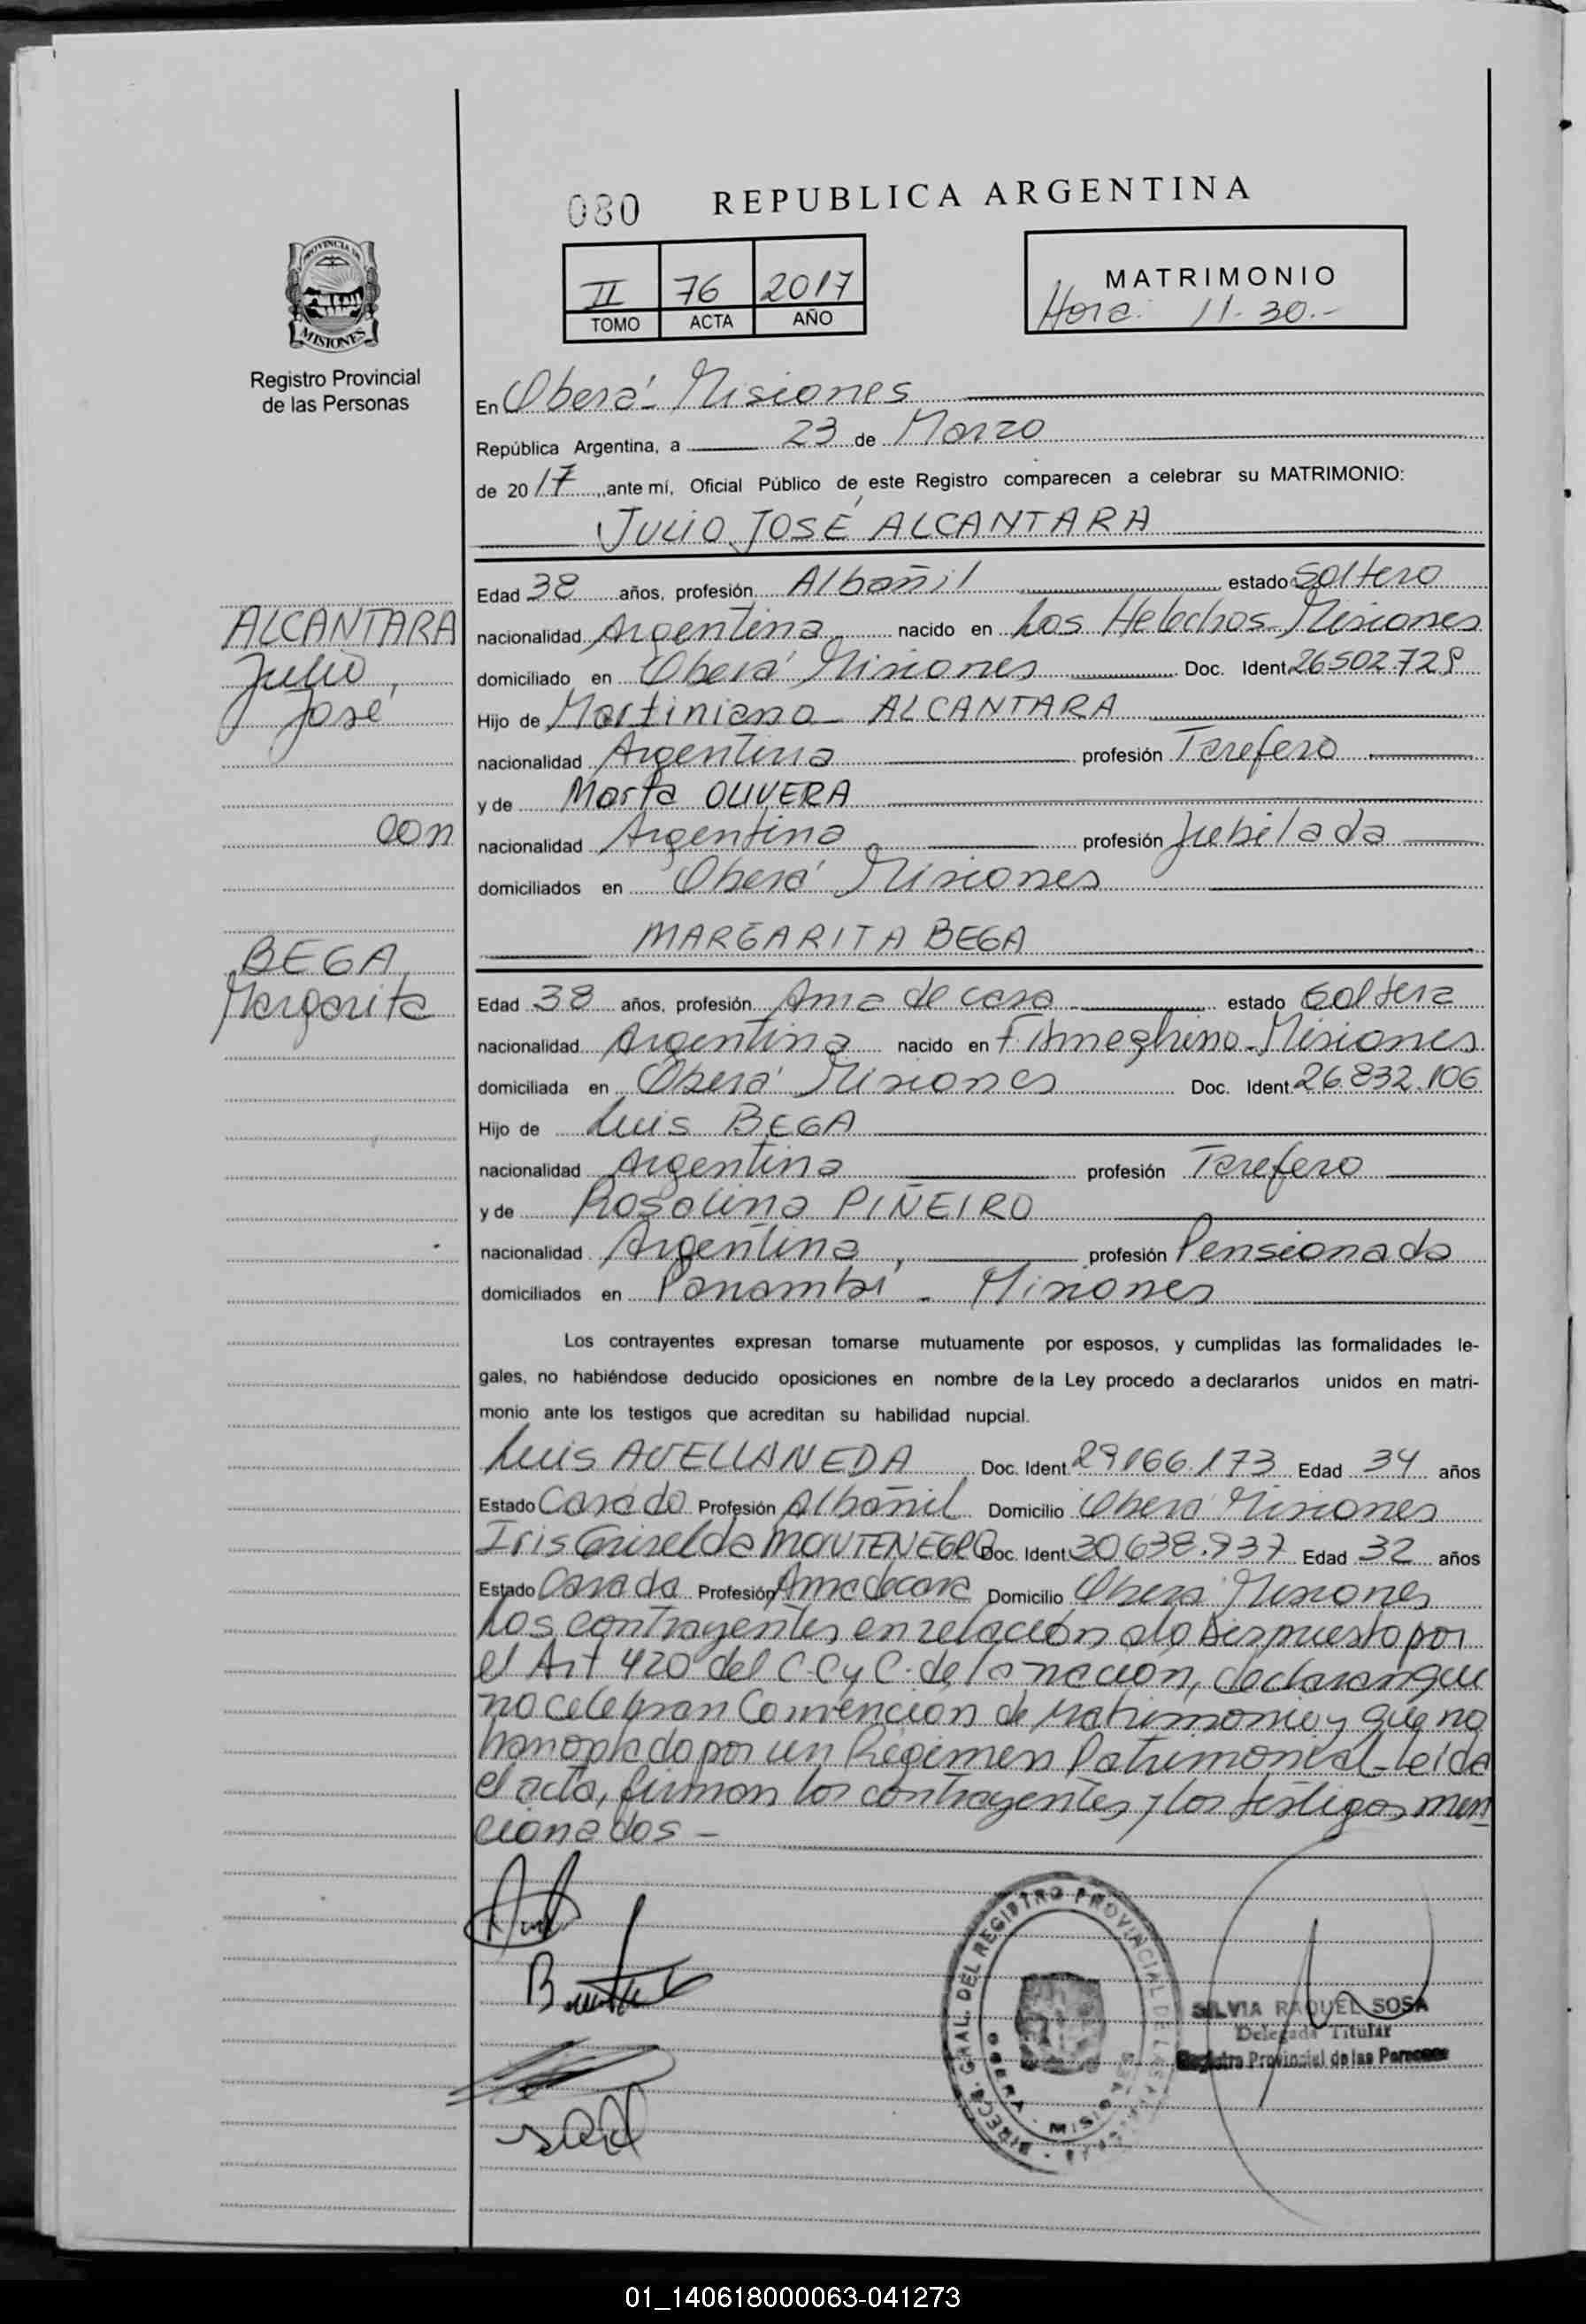 080 REPUBLICA ARGENTINA
PROVINCIA DE
MISIONES
Registro Provincial
de las Personas
II 76 2017
TOMO ACTA AÑO
MATRIMONIO
Hora: 11-30.-
En Oberá - Misiones
República Argentina, a 23 de Marzo
de 2017, ante mí, Oficial Público de este Registro comparecen a celebrar su MATRIMONIO:
JULIO JOSÉ ALCANTARA
Edad 38 años, profesión Albañil estado Soltero
ALCANTARA
Julio,
José
nacionalidad Argentina nacido en Los Helechos - Misiones
domiciliado en Oberá Misiones Doc. Ident. 26.502.729
Hijo de Martiniano ALCANTARA
nacionalidad Argentina profesión Tarefero
y de Marta OLIVERA
con
nacionalidad Argentina profesión Jubilada
domiciliados en Oberá Misiones
MARGARITA BEGA
BEGA,
Margarita
Edad 38 años, profesión Ama de casa estado Soltera
nacionalidad Argentina nacido en F. Ameghino - Misiones
domiciliada en Oberá Misiones Doc. Ident. 26.832.106
Hijo de Luis BEGA
nacionalidad Argentina profesión Tarefero
y de Rosalina PIÑEIRO
nacionalidad Argentina, profesión Pensionada
domiciliados en Panambí - Misiones
Los contrayentes expresan tomarse mutuamente por esposos, y cumplidas las formalidades le-
gales, no habiéndose deducido oposiciones en nombre de la Ley procedo a declararlos unidos en matri-
monio ante los testigos que acreditan su habilidad nupcial.
Luis AVELLANEDA Doc. Ident. 29166.173 Edad 34 años
Estado Casado Profesión Albañil Domicilio Oberá Misiones
Iris Griselda MONTENEGRO Doc. Ident. 30638.937 Edad 32 años
Estado Casada Profesión Ama de casa Domicilio Oberá Misiones
Los contrayentes en relación a lo Dispuesto por
el Art 420 del C.C y C. de la nación, declaran que
no celebran Convención de Matrimonio y que no
han optado por un Régimen Patrimonial - Leída
el acta, firman los contrayentes y los testigos men
cionados -
DIRECC. GRAL. DEL REGISTRO PROVINCIAL DE LAS PERSONAS
OBERA - MISIONES
SILVIA RAQUEL SOSA
Delegada Titular
Registro Provincial de las Personas
01_140618000063-041273